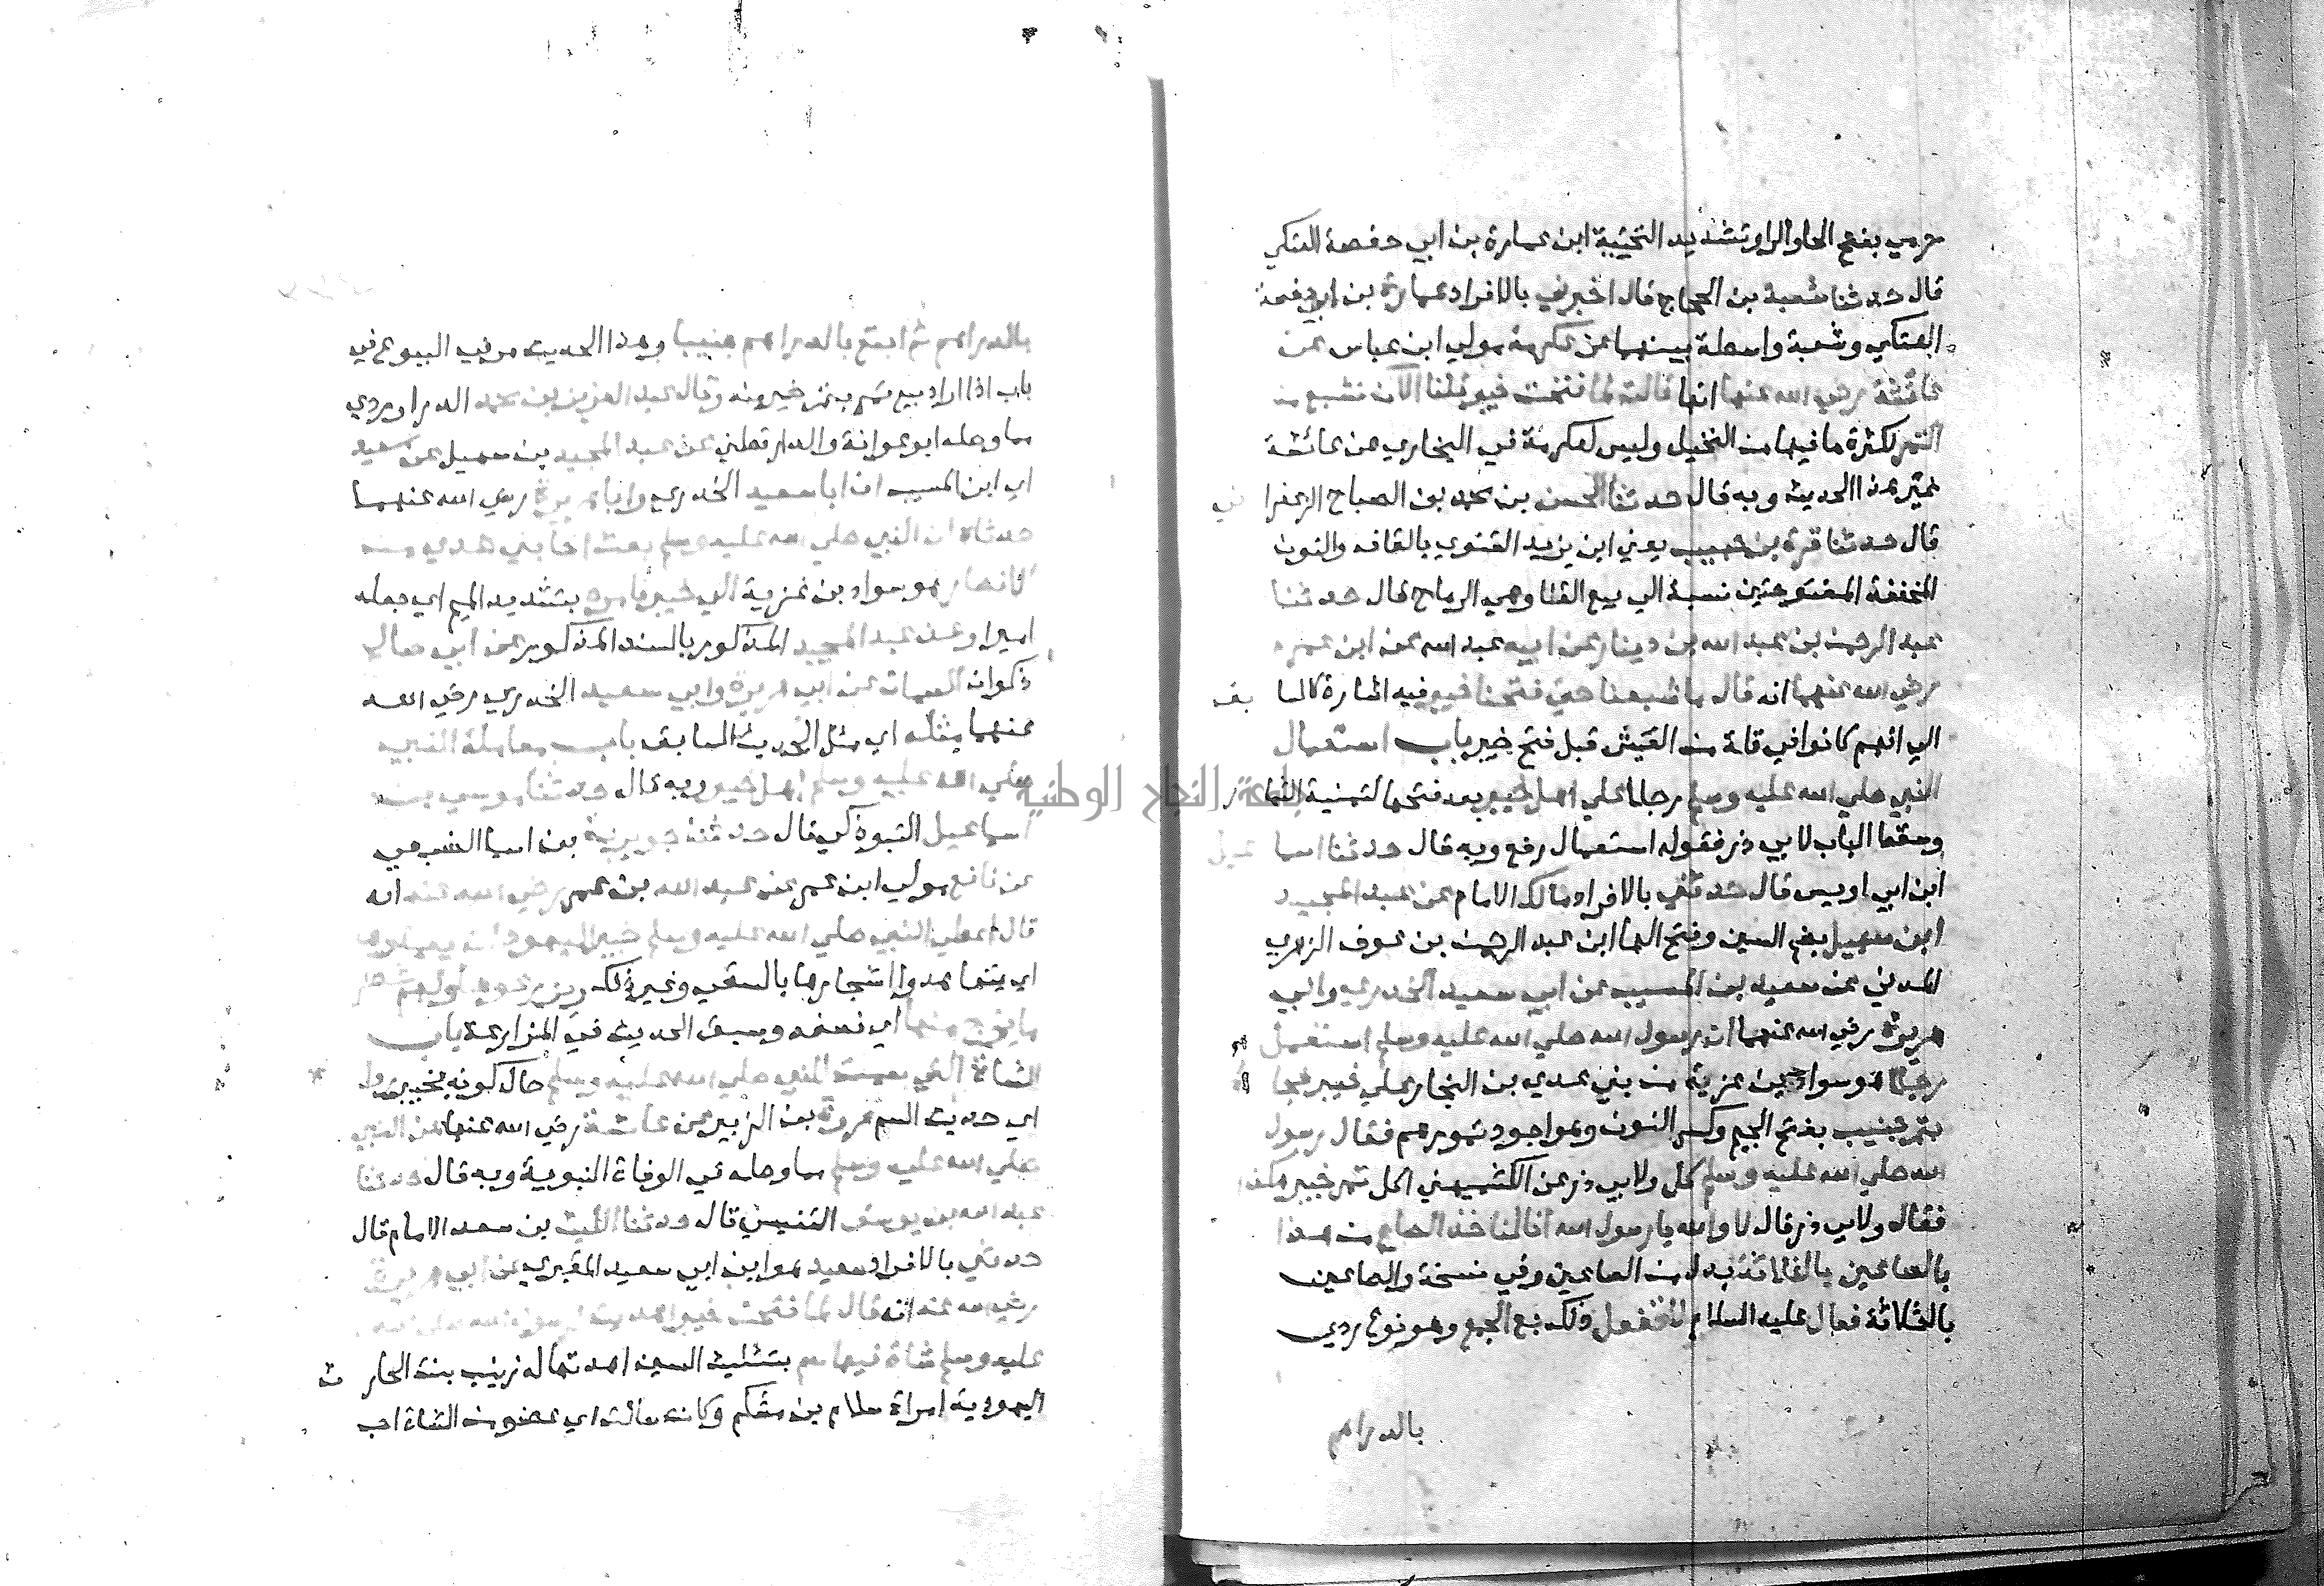 حرمي بفتح الحا والرا وتشديد التحتية ابن عمارة بن ابي حفصة العتكي
قال حدثنا شعبة بن الحجاج قال اخبرني بالافراد عمارة بن ابي حفصة
العتكي وشعبة واسطة بينهما عن عكرمة مولي ابن عباس عن
عائشة رضي الله عنها انها قالت لما فتحت خيبر قلنا الآن نشبع من
التمر لكثرة ما فيها من النخيل وليس لعكرمة في البخاري عن عائشة
غير هذا الحديث وبه قال حدثنا الحسن بن محمد بن الصباح الزعفراني
قال حدثنا قرة بن حبيب يعني ابن يزيد القنوي بالقاف والنون
المخففة المفتوحتين نسبة الي بيع القنا وهي الرماح قال حدثنا
عبد الرحمن بن عبد الله بن دينار عن ابيه عبد الله عن ابن عمر
رضي الله عنهما انه قال ما شبعنا حتي فتحنا خيبر فيه اشارة كالسابق
الي انهم كانوا في قلة من العيش قبل فتح خيبر باب استعمال
النبي صلي الله عليه وسلم رجلا علي اهل خيبر بعد فتحها لتنمية الثمار
وسقط الباب لابي ذر فقوله استعمال رفع وبه قال حدثنا اسماعيل
ابن ابي اويس قال حدثني بالافراد مالك الامام عن عبد المجيد
ابن سهيل بضم السين وفتح الها ابن عبد الرحمن بن عوف الزهري
المدني عن سعيد بن المسيب عن ابي سعيد الخدري وابي
هريرة رضي الله عنهما ان رسول الله صلي الله عليه وسلم استعمل
رجلا هو سواد بن غزية من بني عدي بن النجار علي خيبر فجاه
بتمر جنيب بفتح الجيم وكسر النون وهو اجود تمورهم فقال رسول
الله صلي الله عليه وسلم كل ولابي ذر عن الكشميهني اكل تمر خيبر هكذا
فقال ولابي ذر قال لا والله يا رسول الله انا لناخذ الصاع من هذا
بالصاعين بالثلاثة بدل من الصاعين وفي نسخة والصاعين
بالثلاثة فقال عليه السلام لا تفعل ذلك بع الجمع وهو نوع ردي
بالدراهم
بالدراهم ثم ابتع بالدراهم جنيبا وهذا الحديث مر في البيوع في
باب اذا اراد بيع تمر بتمر خير منه وقال عبد العزيز بن محمد الدراوردي
مما وصله ابو عوانة والدارقطني عن عبد المجيد بن سهيل عن سعيد
اي ابن المسيب ان ابا سعيد الخدري وابا هريرة رضي الله عنهما
حدثاه ان النبي صلي الله عليه وسلم بعث اخا بني عدي من
الانصار هو سواد بن غزية الي خيبر فامره بتشديد الميم اي جعله
اميرا وعن عبد المجيد المذكور بالسند المذكور عن ابي صالح
ذكوان السمان عن ابي هريرة وابي سعيد الخدري رضي الله
عنهما مثله اي مثل الحديث السابق باب معاملة النبي
صلي الله عليه وسلم اهل خيبر وبه قال حدثنا موسي بن
اسماعيل التبوذكي قال حدثنا جويرية بن اسما الضبعي
عن نافع مولي ابن عمر عن عبد الله بن عمر رضي الله عنه انه
قال اعطي النبي صلي الله عليه وسلم خيبر اليهود ان يعملوها
اي يتعاهدوا اشجارها بالسقي وغير ذلك ويزرعوها ولهم شطر
ما يخرج منها اي نصفه وسبق الحديث في المزارعة باب
الشاة التي سمت للنبي صلي الله عليه وسلم حال كونه بخيبر رواه
اي حديث السم عروة بن الزبير عن عائشة رضي الله عنها عن النبي
صلي الله عليه وسلم مما وصله في الوفاة النبوية وبه قال حدثنا
عبد الله بن يوسف التنيسي قال حدثنا الليث بن سعد الامام قال
حدثني بالافراد سعيد هو ابن ابي سعيد المقبري عن ابي هريرة
رضي الله عنه انه قال لما فتحت خيبر اهديت لرسول الله صلي الله
عليه وسلم شاة فيها سم بتثليث السين اهدتها له زينب بنت الحارث
اليهودية امراة سلام بن مشكم وكانت سالت اي عضو من الشاة احب
جامعة النجاح الوطنية